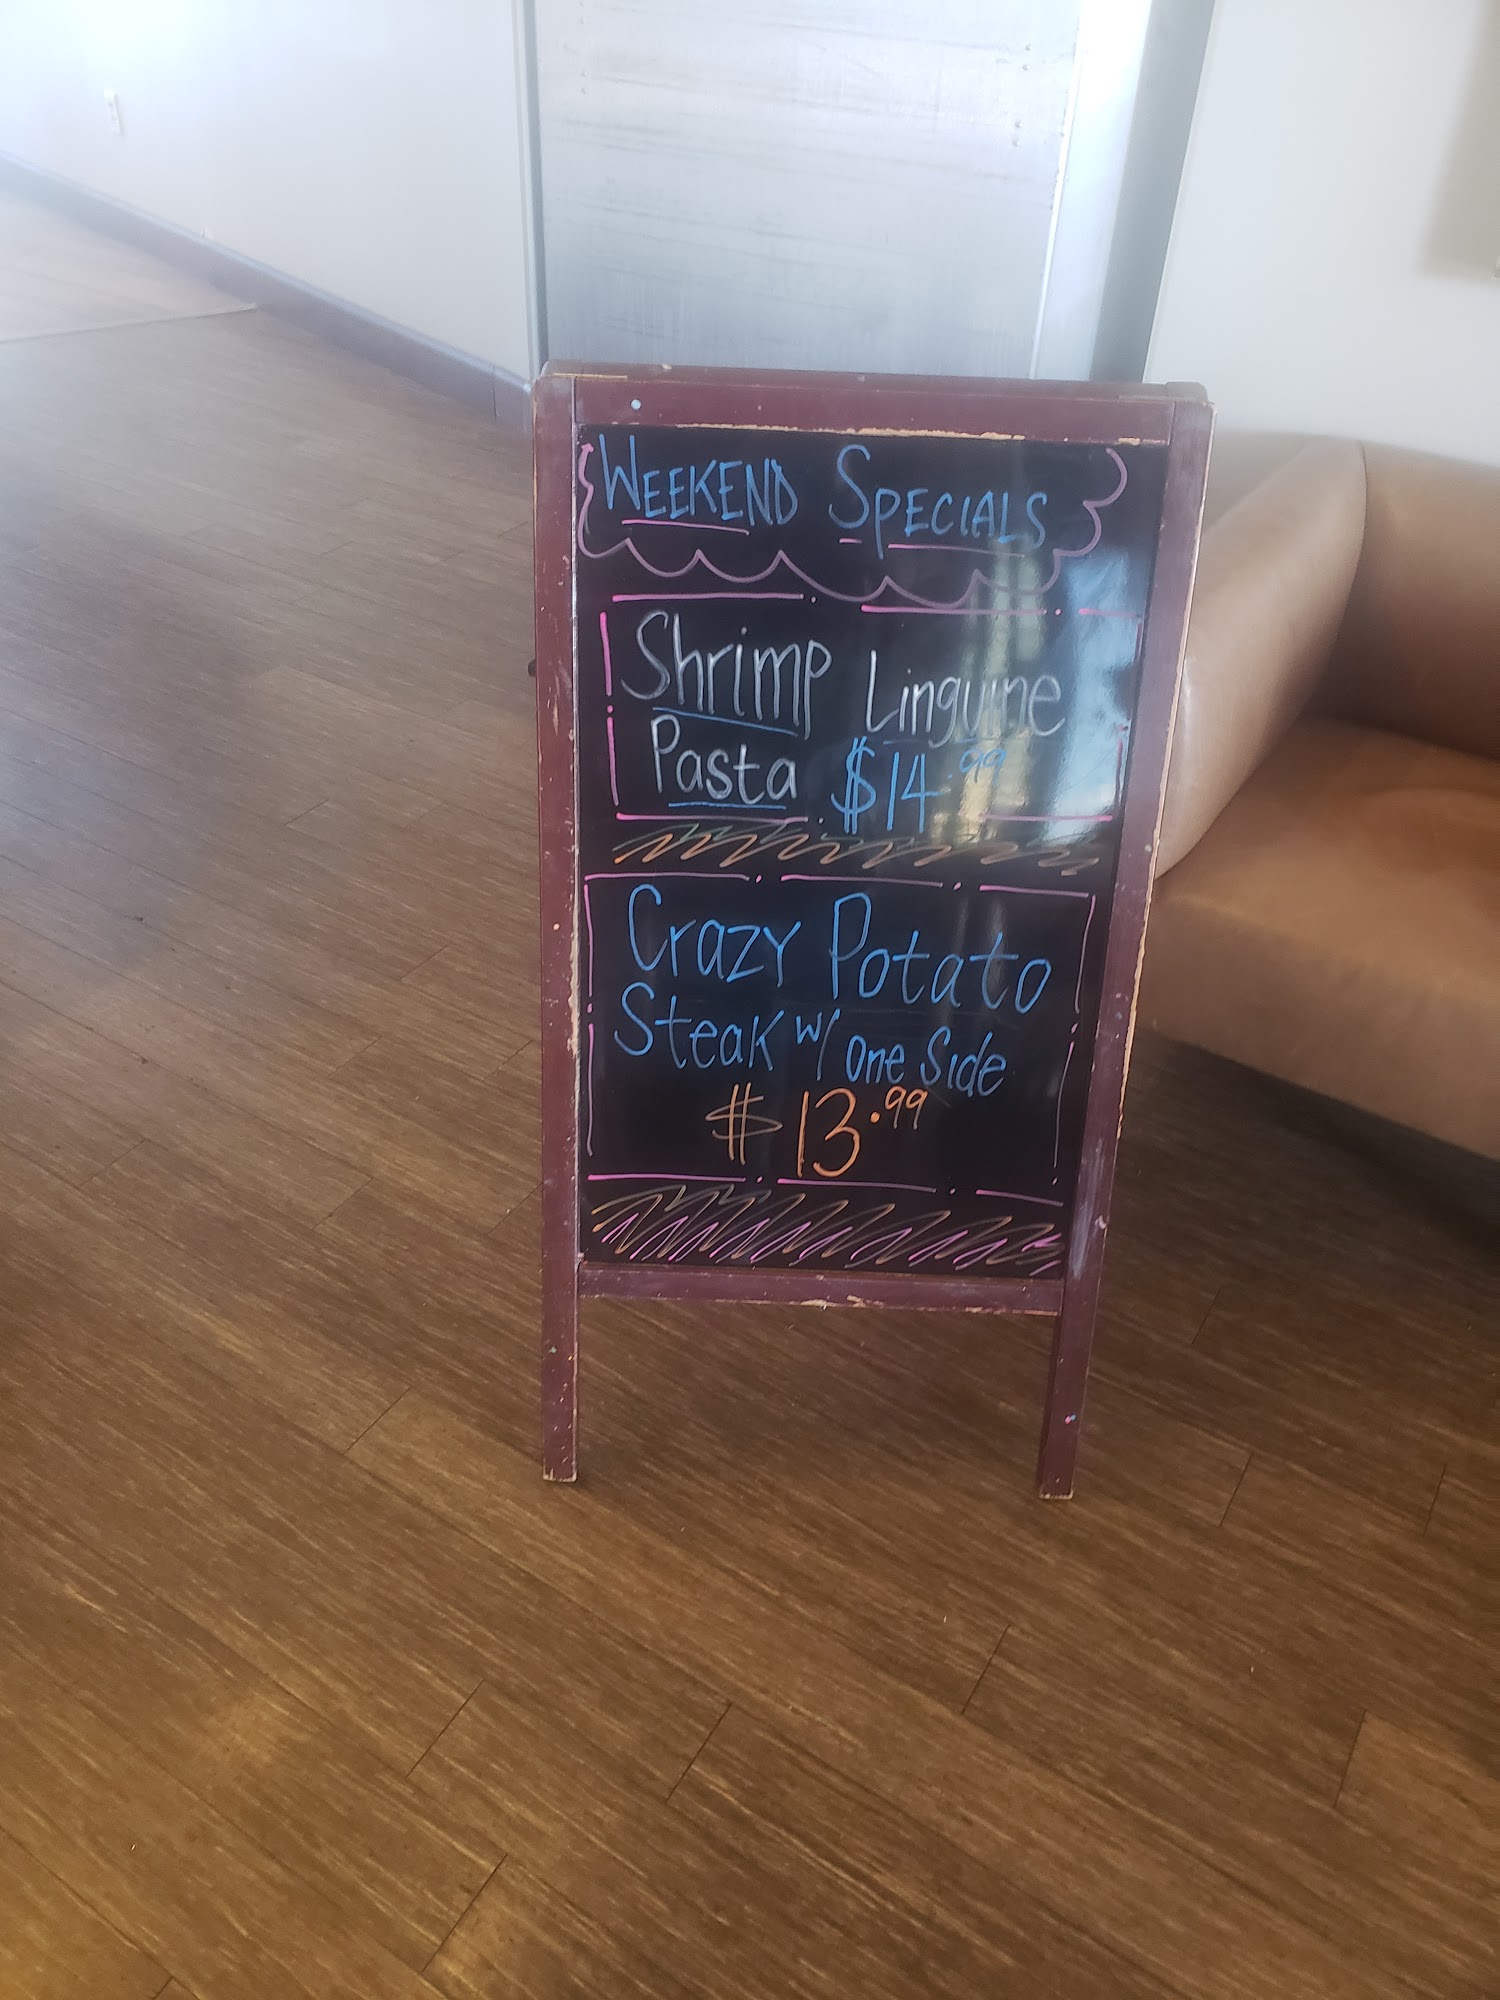 WEEKEND SPECIALS
Shrimp Linguine
Pasta $14.99
Crazy Potato
Steak w/ one Side
$13.99